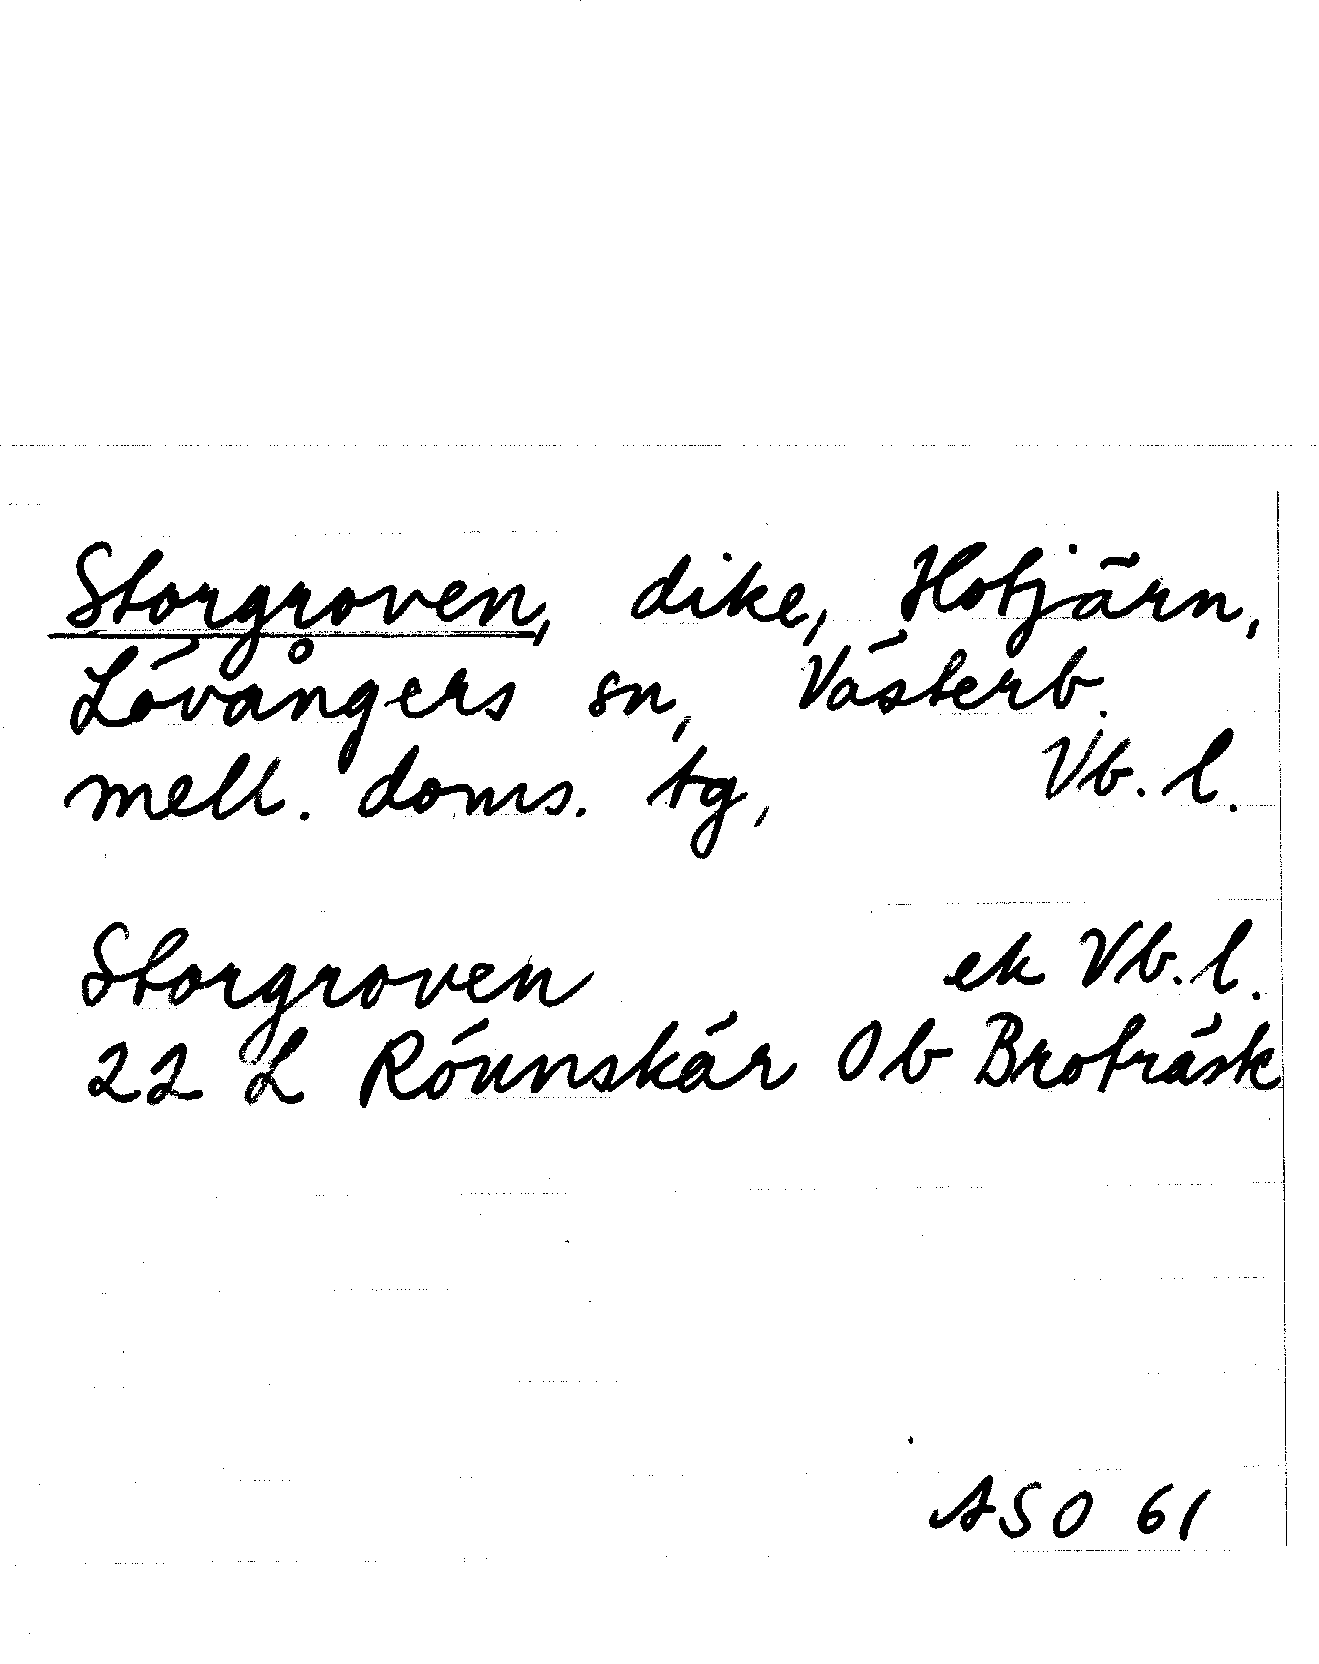 Storgroven, dike, Hötjärn,
Lövångers sn, Västerb.
mell. doms. tg, Vb. l.
Storgroven ek Vb. l.
22 L Rönnskär Ob Broträsk
ASO 61